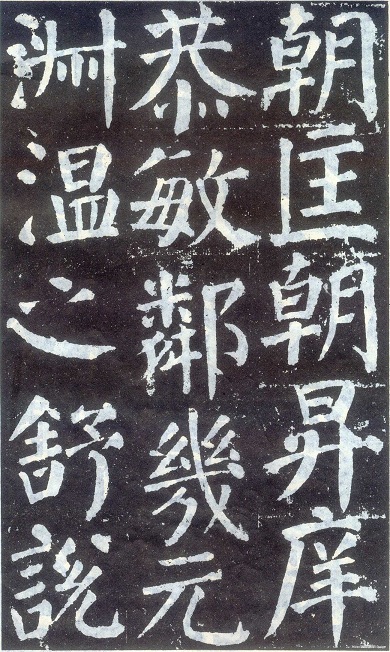 朝匡朝昇庠
恭敏鄰幾元
淵溫之舒說